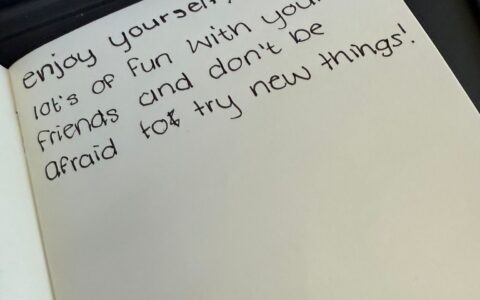 enjoy yourself,
lot's of fun with your
friends and don't be
afraid to try new things!